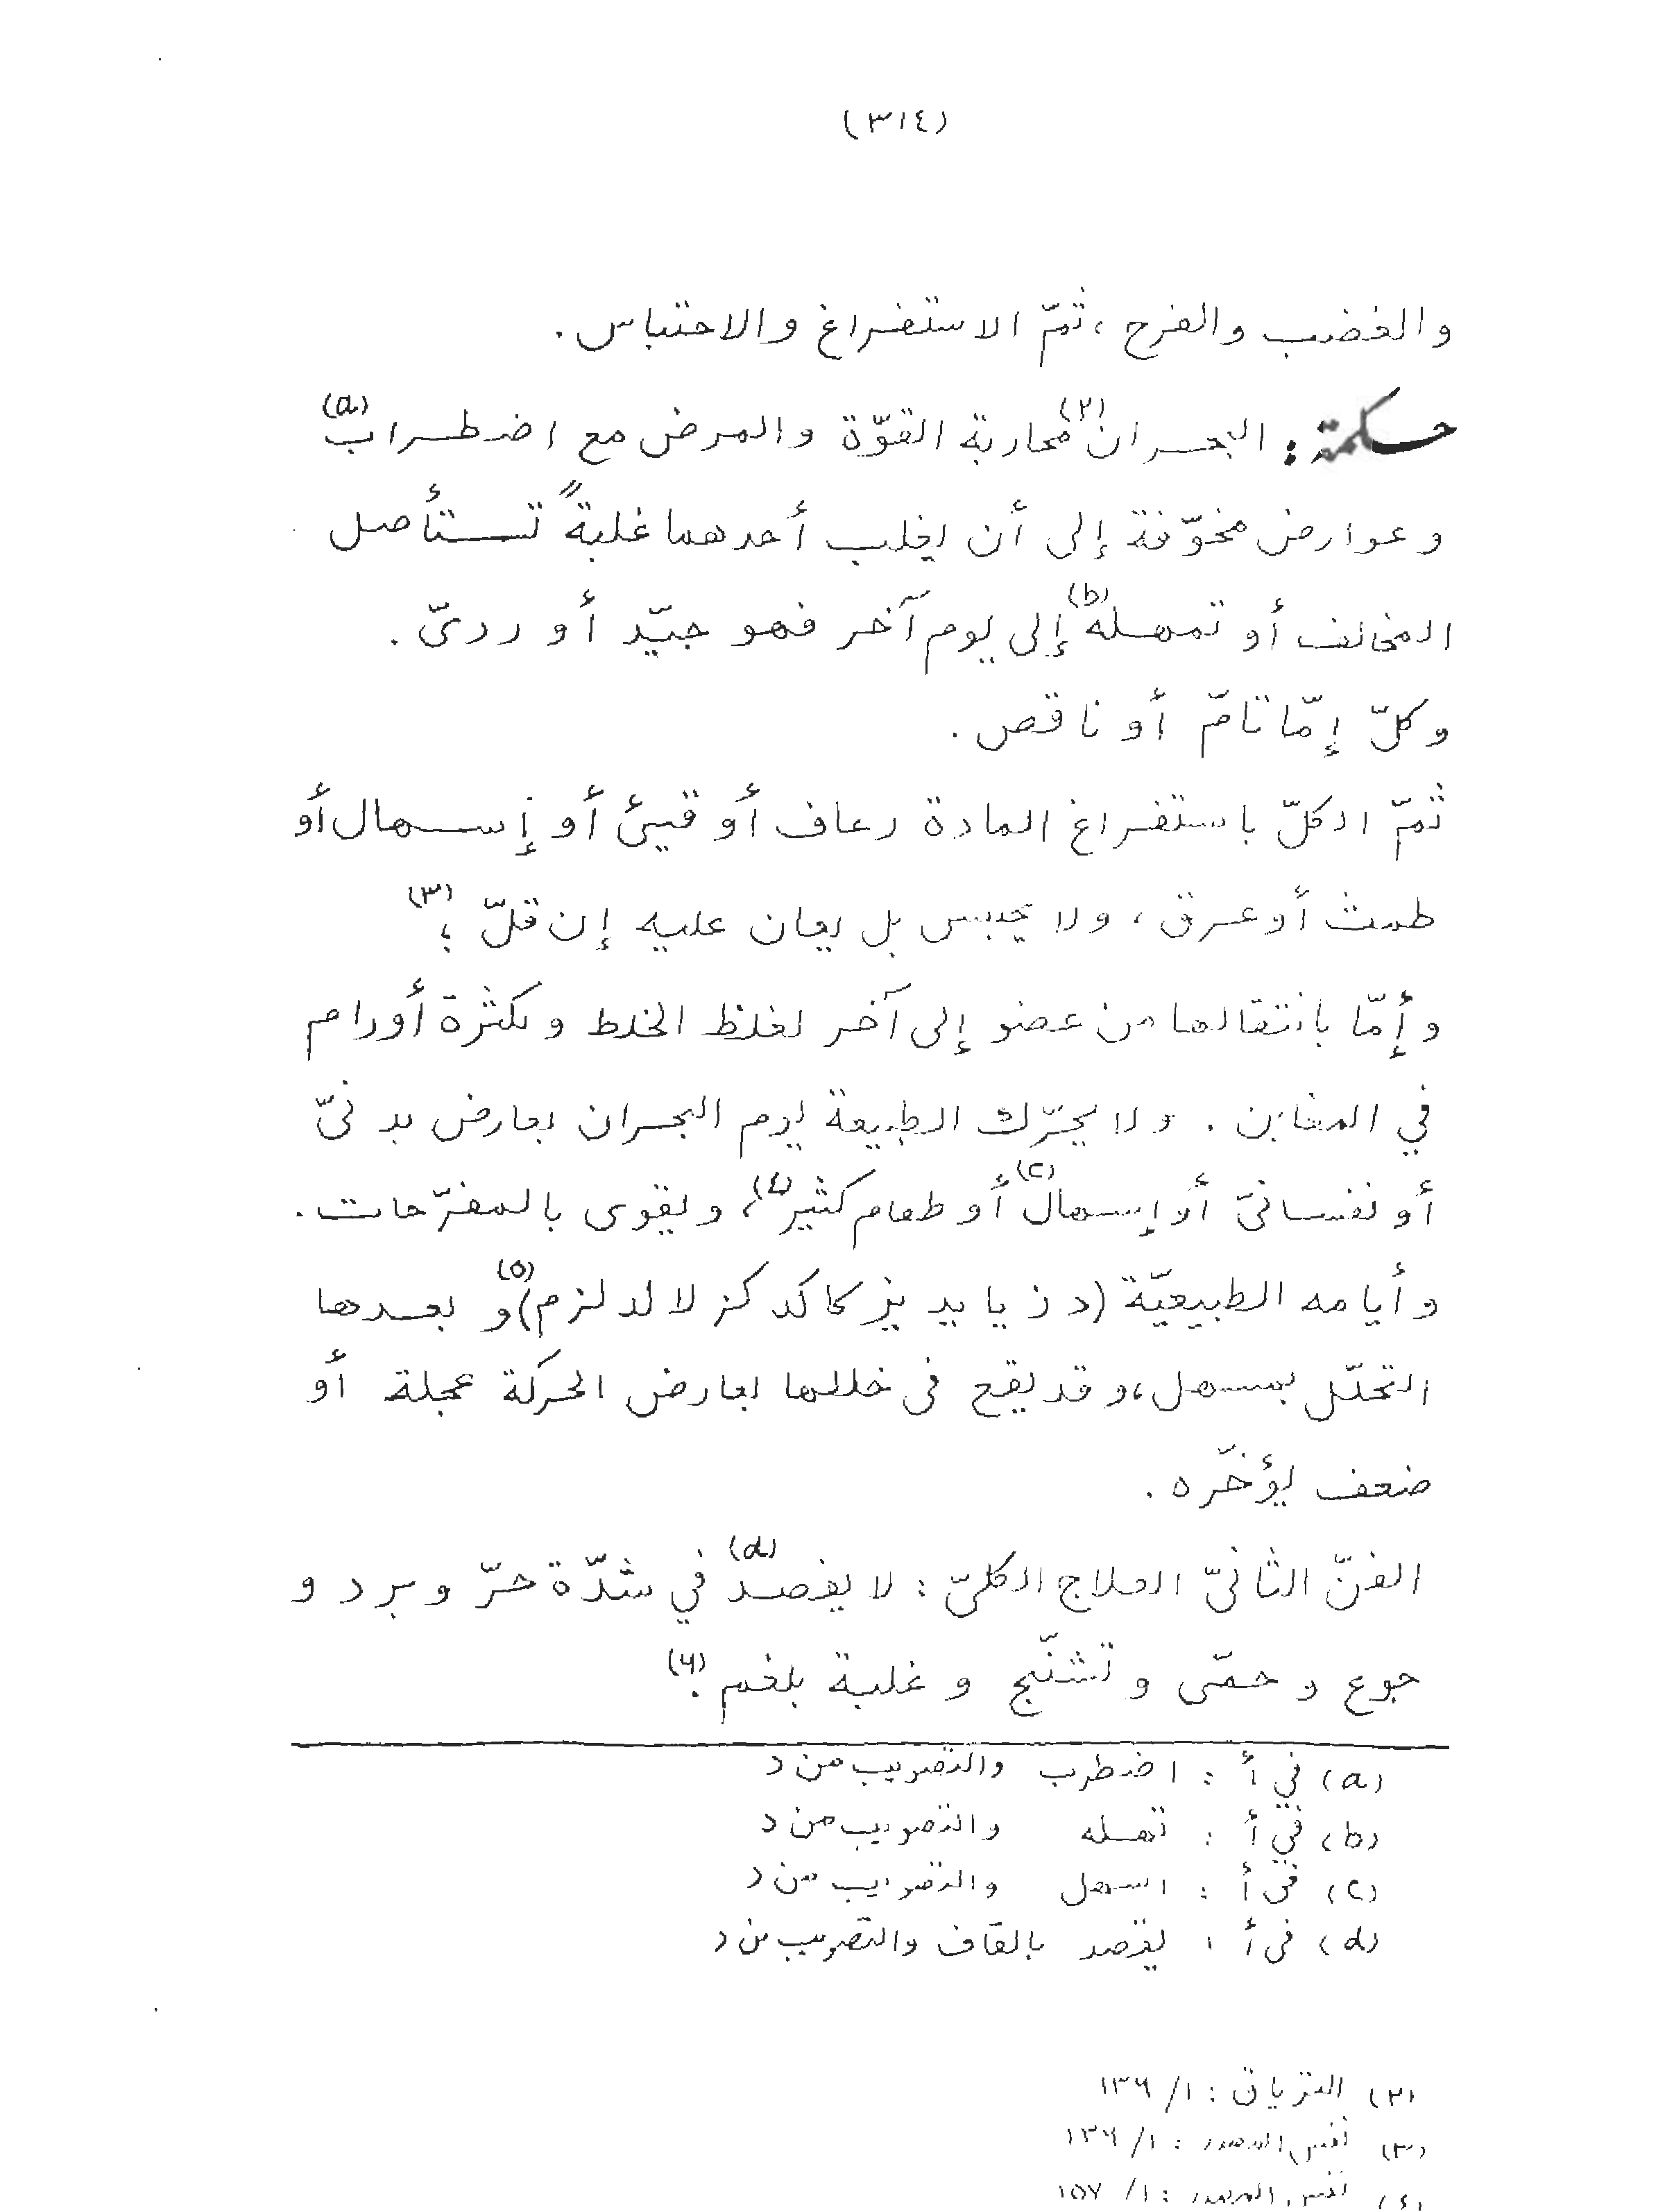 (٣١٤)
والغضب والفرح ، ثمّ الاستفراغ والاحتباس .
حكمة : البحران(٢) محاربة القوّة والمرض مع اضطراب(a)
وعوارض مخوّفة إلى أن يغلب أحدهما غلبةً تستأصل
المخالف أو تمهله(b) إلى يوم آخر فهو جيّد أو رديّ .
وكلّ إمّا تامّ أو ناقص .
ثمّ الكلّ باستفراغ المادة رعاف أو قيئ أو إسهال أو
طمث أو عرق ، ولا يحبس بل يعان عليه إن قلّ ؛(٣)
وإمّا بانتقالها من عضو إلى آخر لغلظ الخلط وبكثرة أورام
في المغابن . ولا يحرّك الطبيعة يوم البحران بعارض بدنيّ
أو نفسانيّ أو إسهال(c) أو طعام كثير(٤)، ويقوى بالمفرّحات .
وأيامه الطبيعيّة (د ز يا يد يز كا كد كز لا لد لز م)(٥) و بعدها
التحلّل بمسهل ، وقد يقع في خللها لعارض الحركة عجلة أو
ضعف يؤخّره .
الفنّ الثانيّ العلاج الكليّ : لا يفصد(d) في شدّة حرّ وبرد و
جوع و حمّى و تشنّج و غلبة بلغم .(٦)
(a) في أ : اضطرب والتصويب من د
(b) في أ : تهسله والتصويب من د
(c) في أ : اسهل والتصويب من د
(d) في أ : يقصد بالقاف والتصويب من د
(٢) الترياق : ١/ ١٣٦
(٣) نفس المصدر : ١/ ١٣٦
(٤) نفس المصدر : ١/ ١٥٧